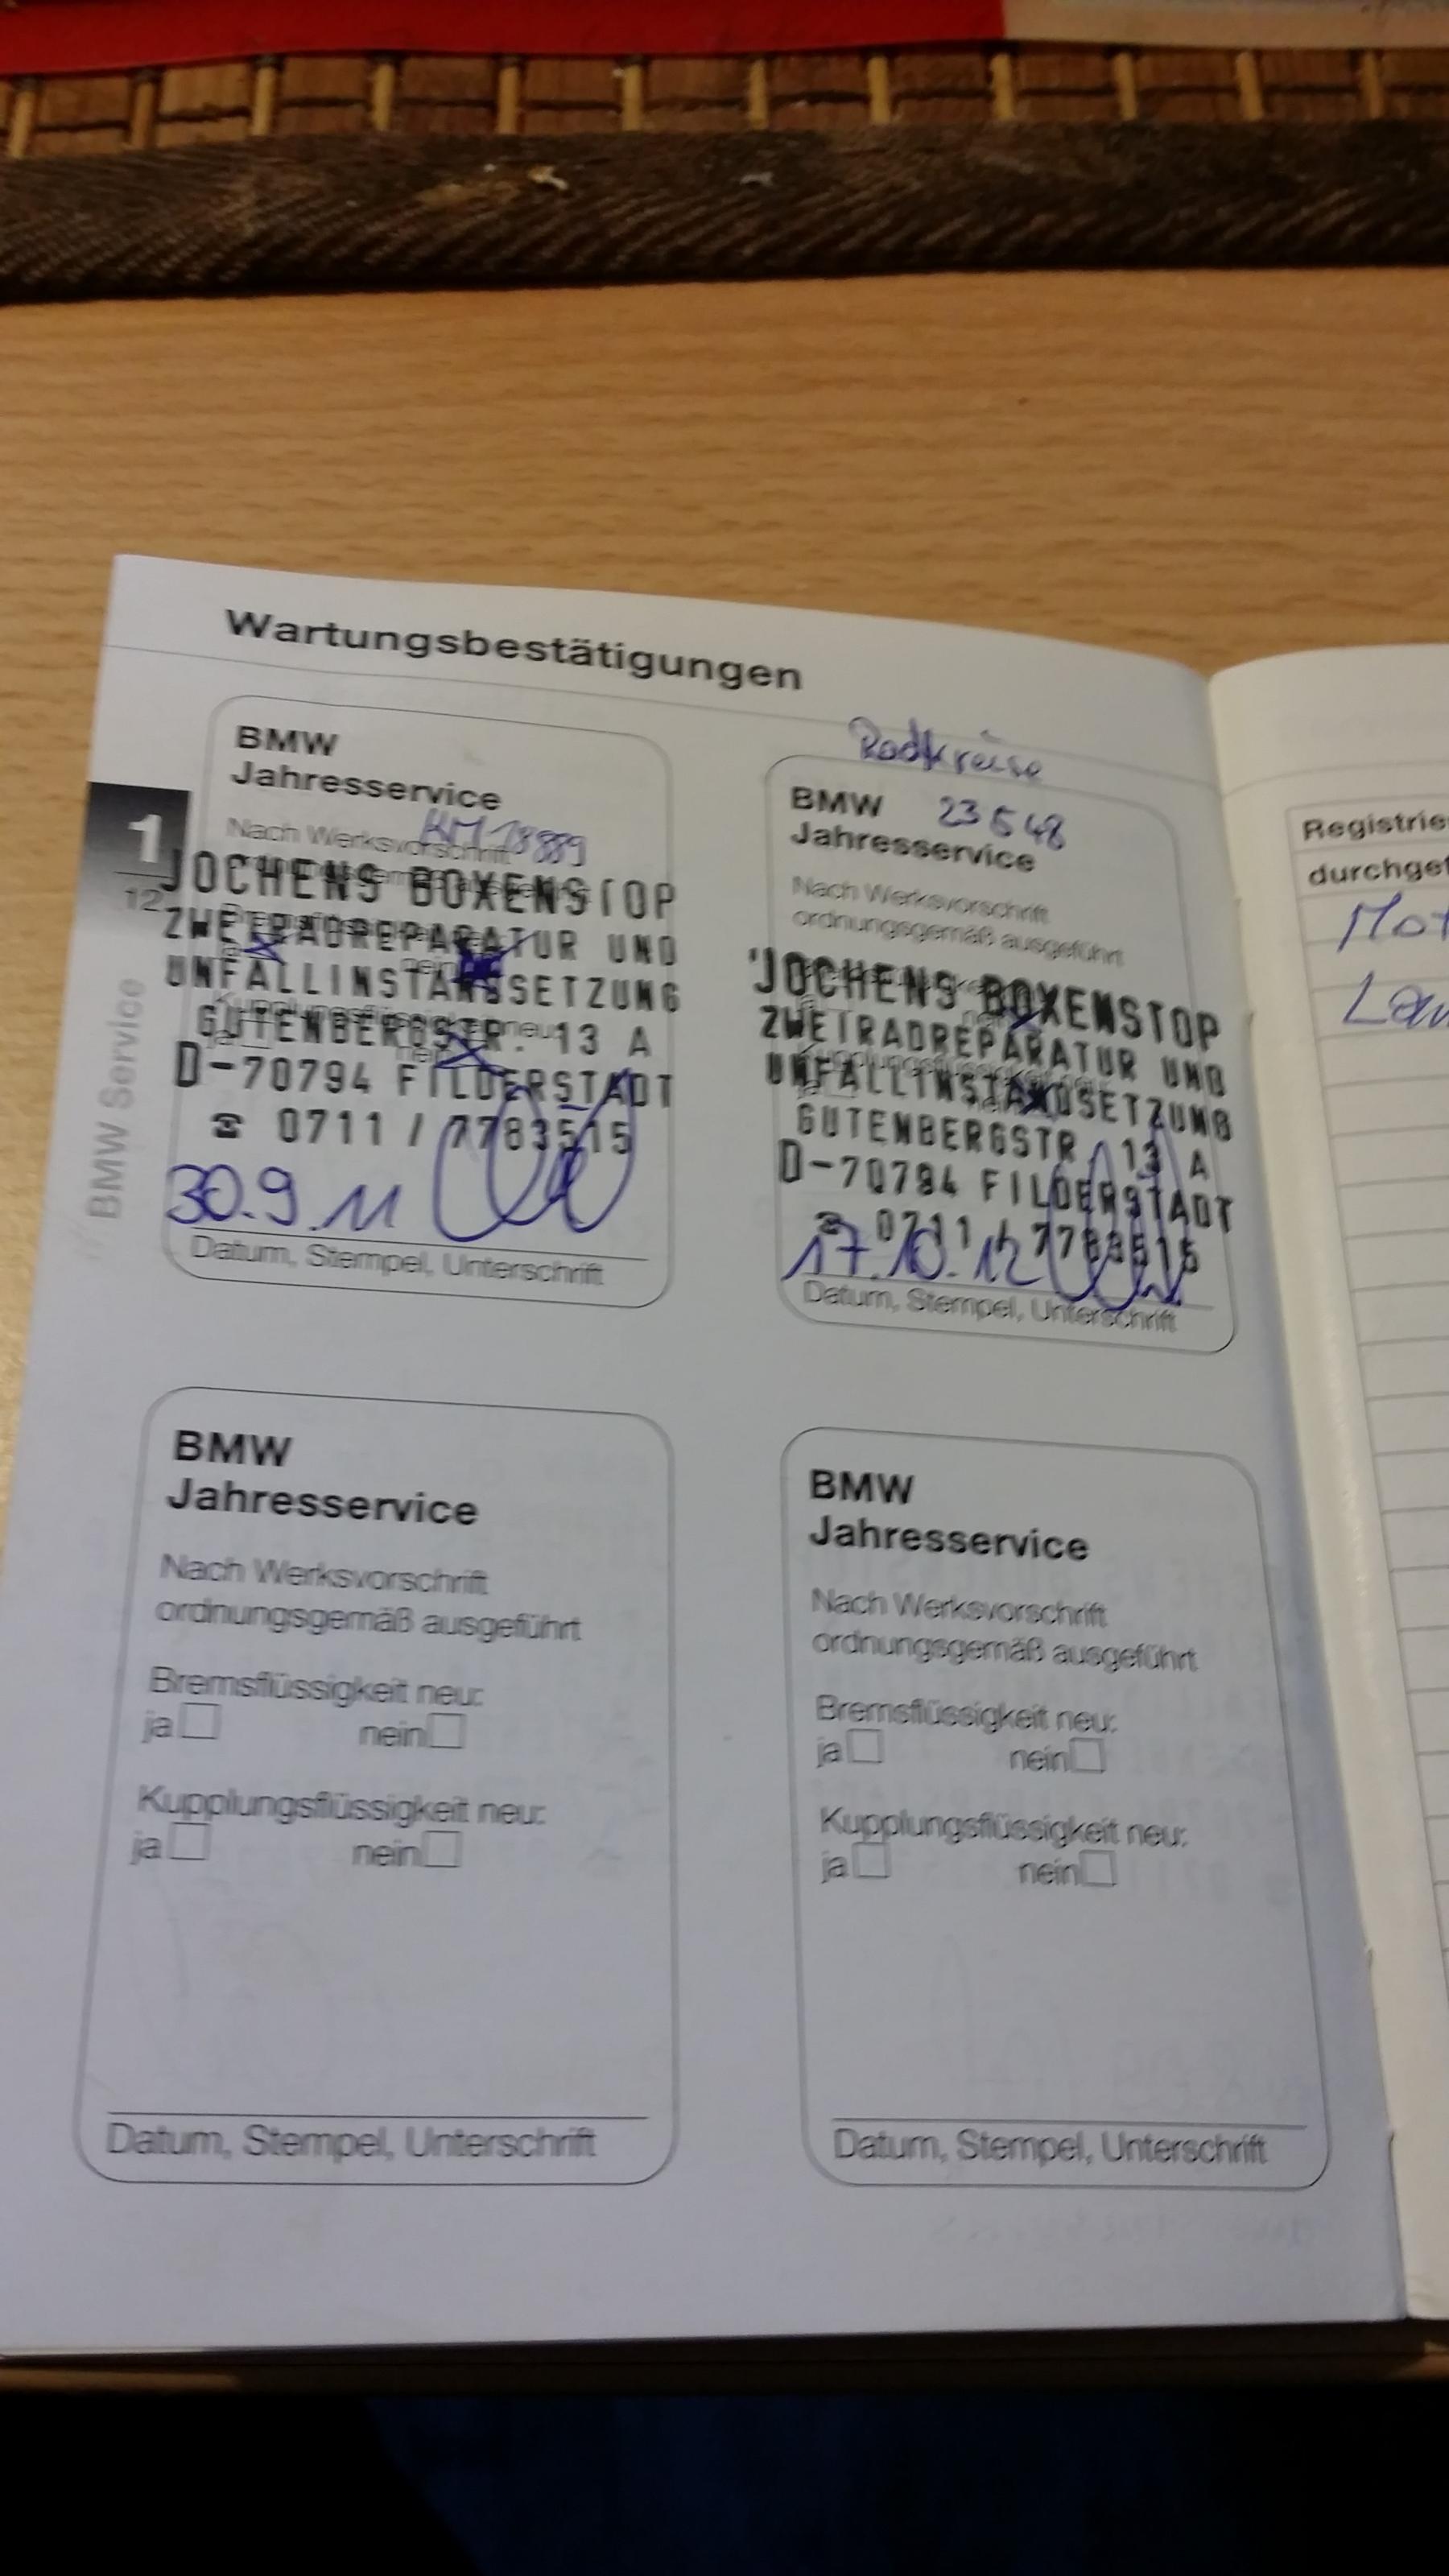 Wartungsbestätigungen
BMW
Jahresservice
Nach Werksvorschrift
KM 18889
JOCHENS BOXENSTOP
ZWEIRADREPARATUR UND
UNFALLINSTANDSETZUNG
GUTENBERGSTR. 13 A
D-70794 FILDERSTADT
☎ 0711 / 7783515
30.9.11
Datum, Stempel, Unterschrift
BMW 23648
Jahresservice
Nach Werksvorschrift
ordnungsgemäß ausgeführt
JOCHENS BOXENSTOP
ZWEIRADREPARATUR UND
UNFALLINSTANDSETZUNG
GUTENBERGSTR. 13 A
D-70794 FILDERSTADT
☎ 0711 / 7783515
17.10.12
Datum, Stempel, Unterschrift
1
12
BMW Service
BMW
Jahresservice
Nach Werksvorschrift
ordnungsgemäß ausgeführt
Bremsflüssigkeit neu:
ja nein
Kupplungsflüssigkeit neu:
ja nein
Datum, Stempel, Unterschrift
BMW
Jahresservice
Nach Werksvorschrift
ordnungsgemäß ausgeführt
Bremsflüssigkeit neu:
ja nein
Kupplungsflüssigkeit neu:
ja nein
Datum, Stempel, Unterschrift
Registrie
durchgef
Mot